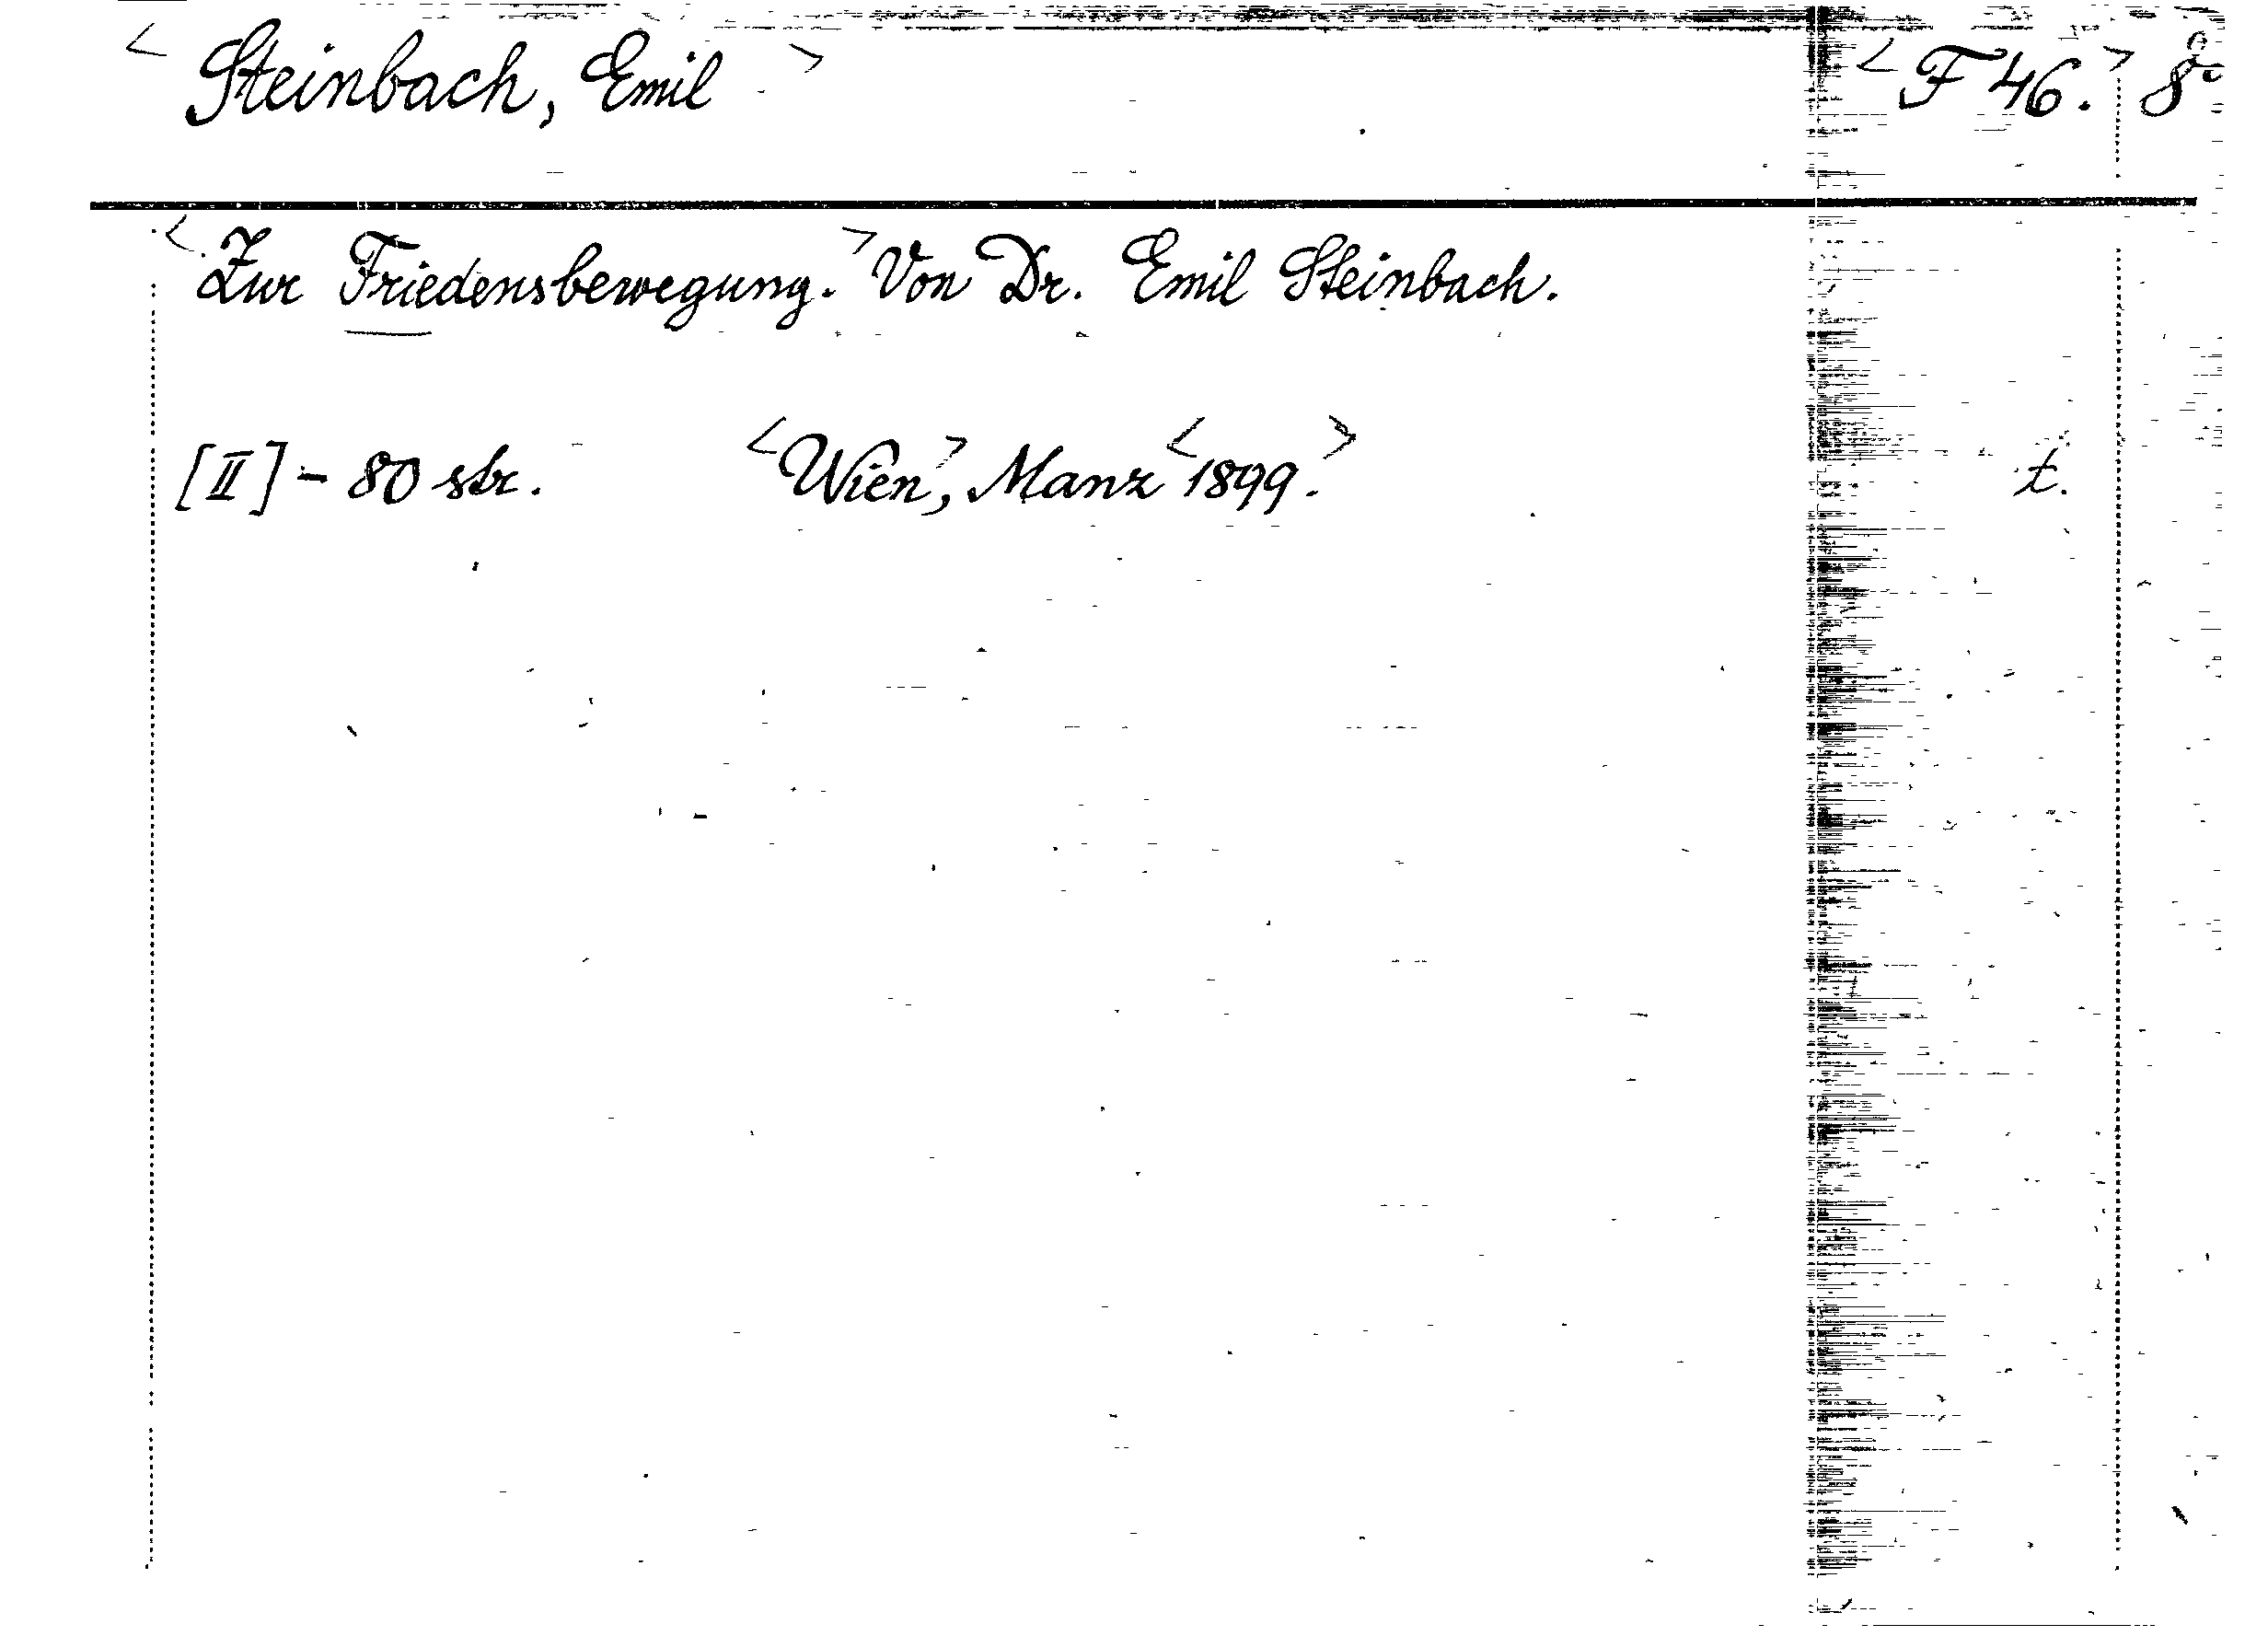 <Steinbach, Emil> <F 46.> 8°
<Zur Friedensbewegung.> Von Dr. Emil Steinbach.
[II] - 80 str. <Wien>, Manz <1899.> t.